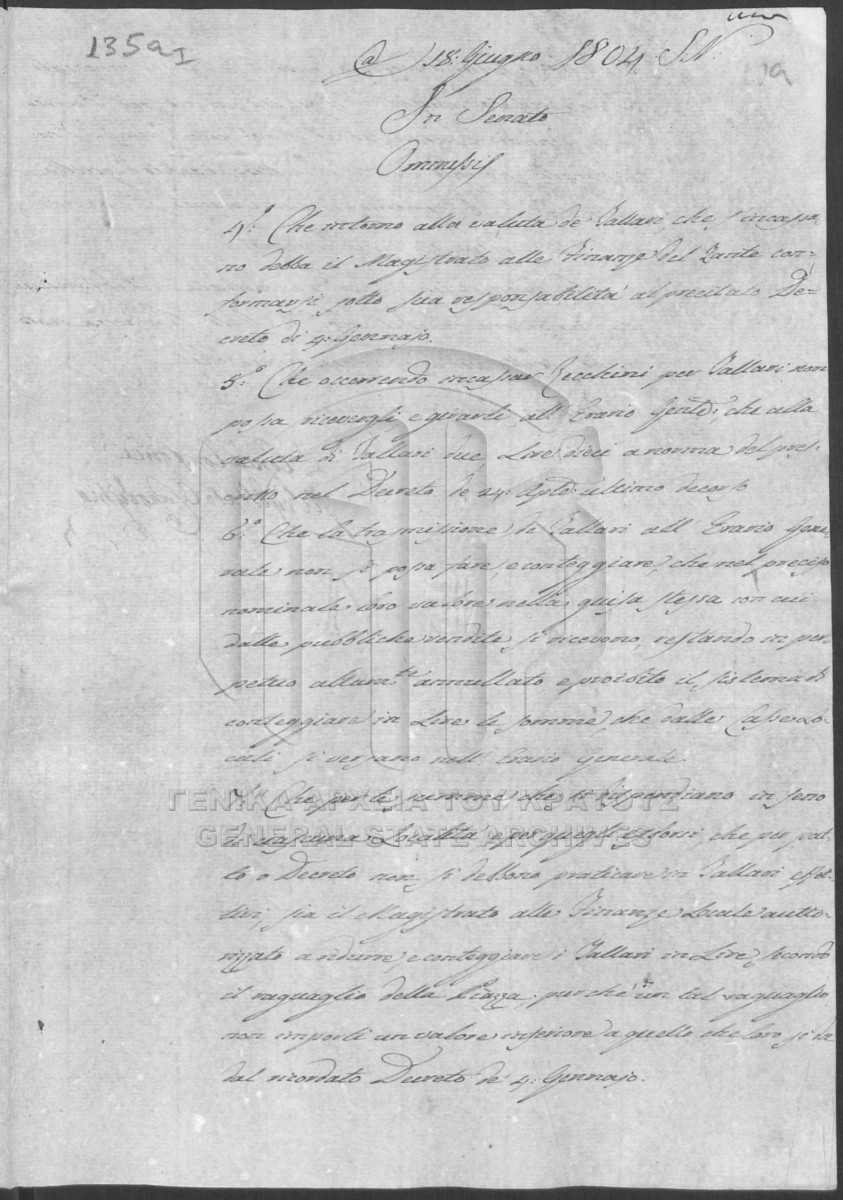 135a1
18: Giugno 1804. S.N.
In Senato
Ommissis
4º: Che intorno alla valuta de Tallari, che s'incassa-
no debba il Magistrato alle Finanze del Zante con-
formarsi sotto sua responsabilità al precitato De-
creto di 4: Gennajo.
5º: Che occorrendo incassar Zecchini per Tallari non
possa ricevergli e girarli all'Erario Genle, che alla
valuta di Tallari due, Lire dieci a norma del pres-
critto nel Decreto de 24: Aple ultimo decorso
6º: Che la tramissione de Tallari all'Erario Gene-
rale non si possa fare, e conteggiare, che nel preciso
nominale loro valore nella guisa stessa con cui
dalle pubbliche vendite si ricevono, restando in per-
petuo annullato e proibito il sistema di
conteggiare in Lire le somme, che dalle Casse Lo-
cali si versano nell'Erario Generale.
7: Che per le summe che si dispendiano in seno
di cias'cuna Località e per quegli esborsi, che per pat-
to o Decreto non si debbono praticare in Tallari effet-
tivi, sia il Magistrato alle Finanze Locale autto-
rizzato a ridurre, e conteggiare i Tallari in Lire, secondo
il raguaglio della Piazza, purchè un tal raguaglio
non importi un valore inferiore a quello che loro si dà
dal ricordato Decreto de 4: Gennajo.
ΓΕΝΙΚΑ ΑΡΧΕΙΑ ΤΟΥ ΚΡΑΤΟΥΣ
GENERAL STATE ARCHIVES